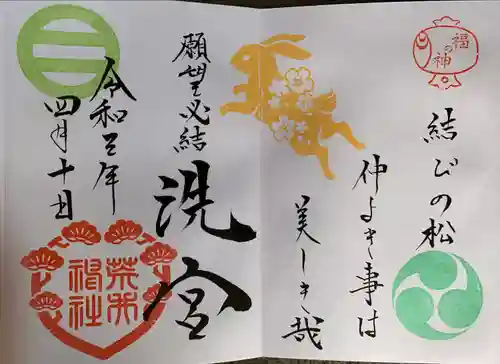 福の神
結びの松
仲よき事は
美しき哉
願望必結
洗宮
令和三年
四月十日